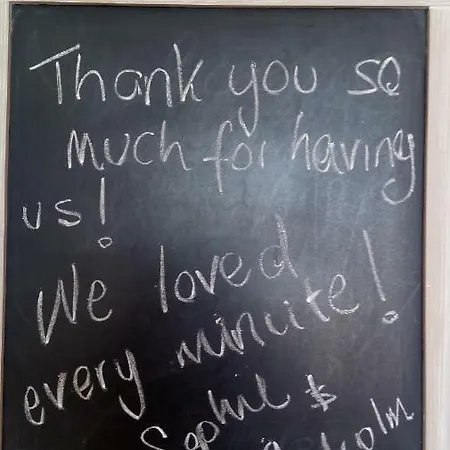 Thank you so
much for having
us!
We loved
every minute!
Sophie &